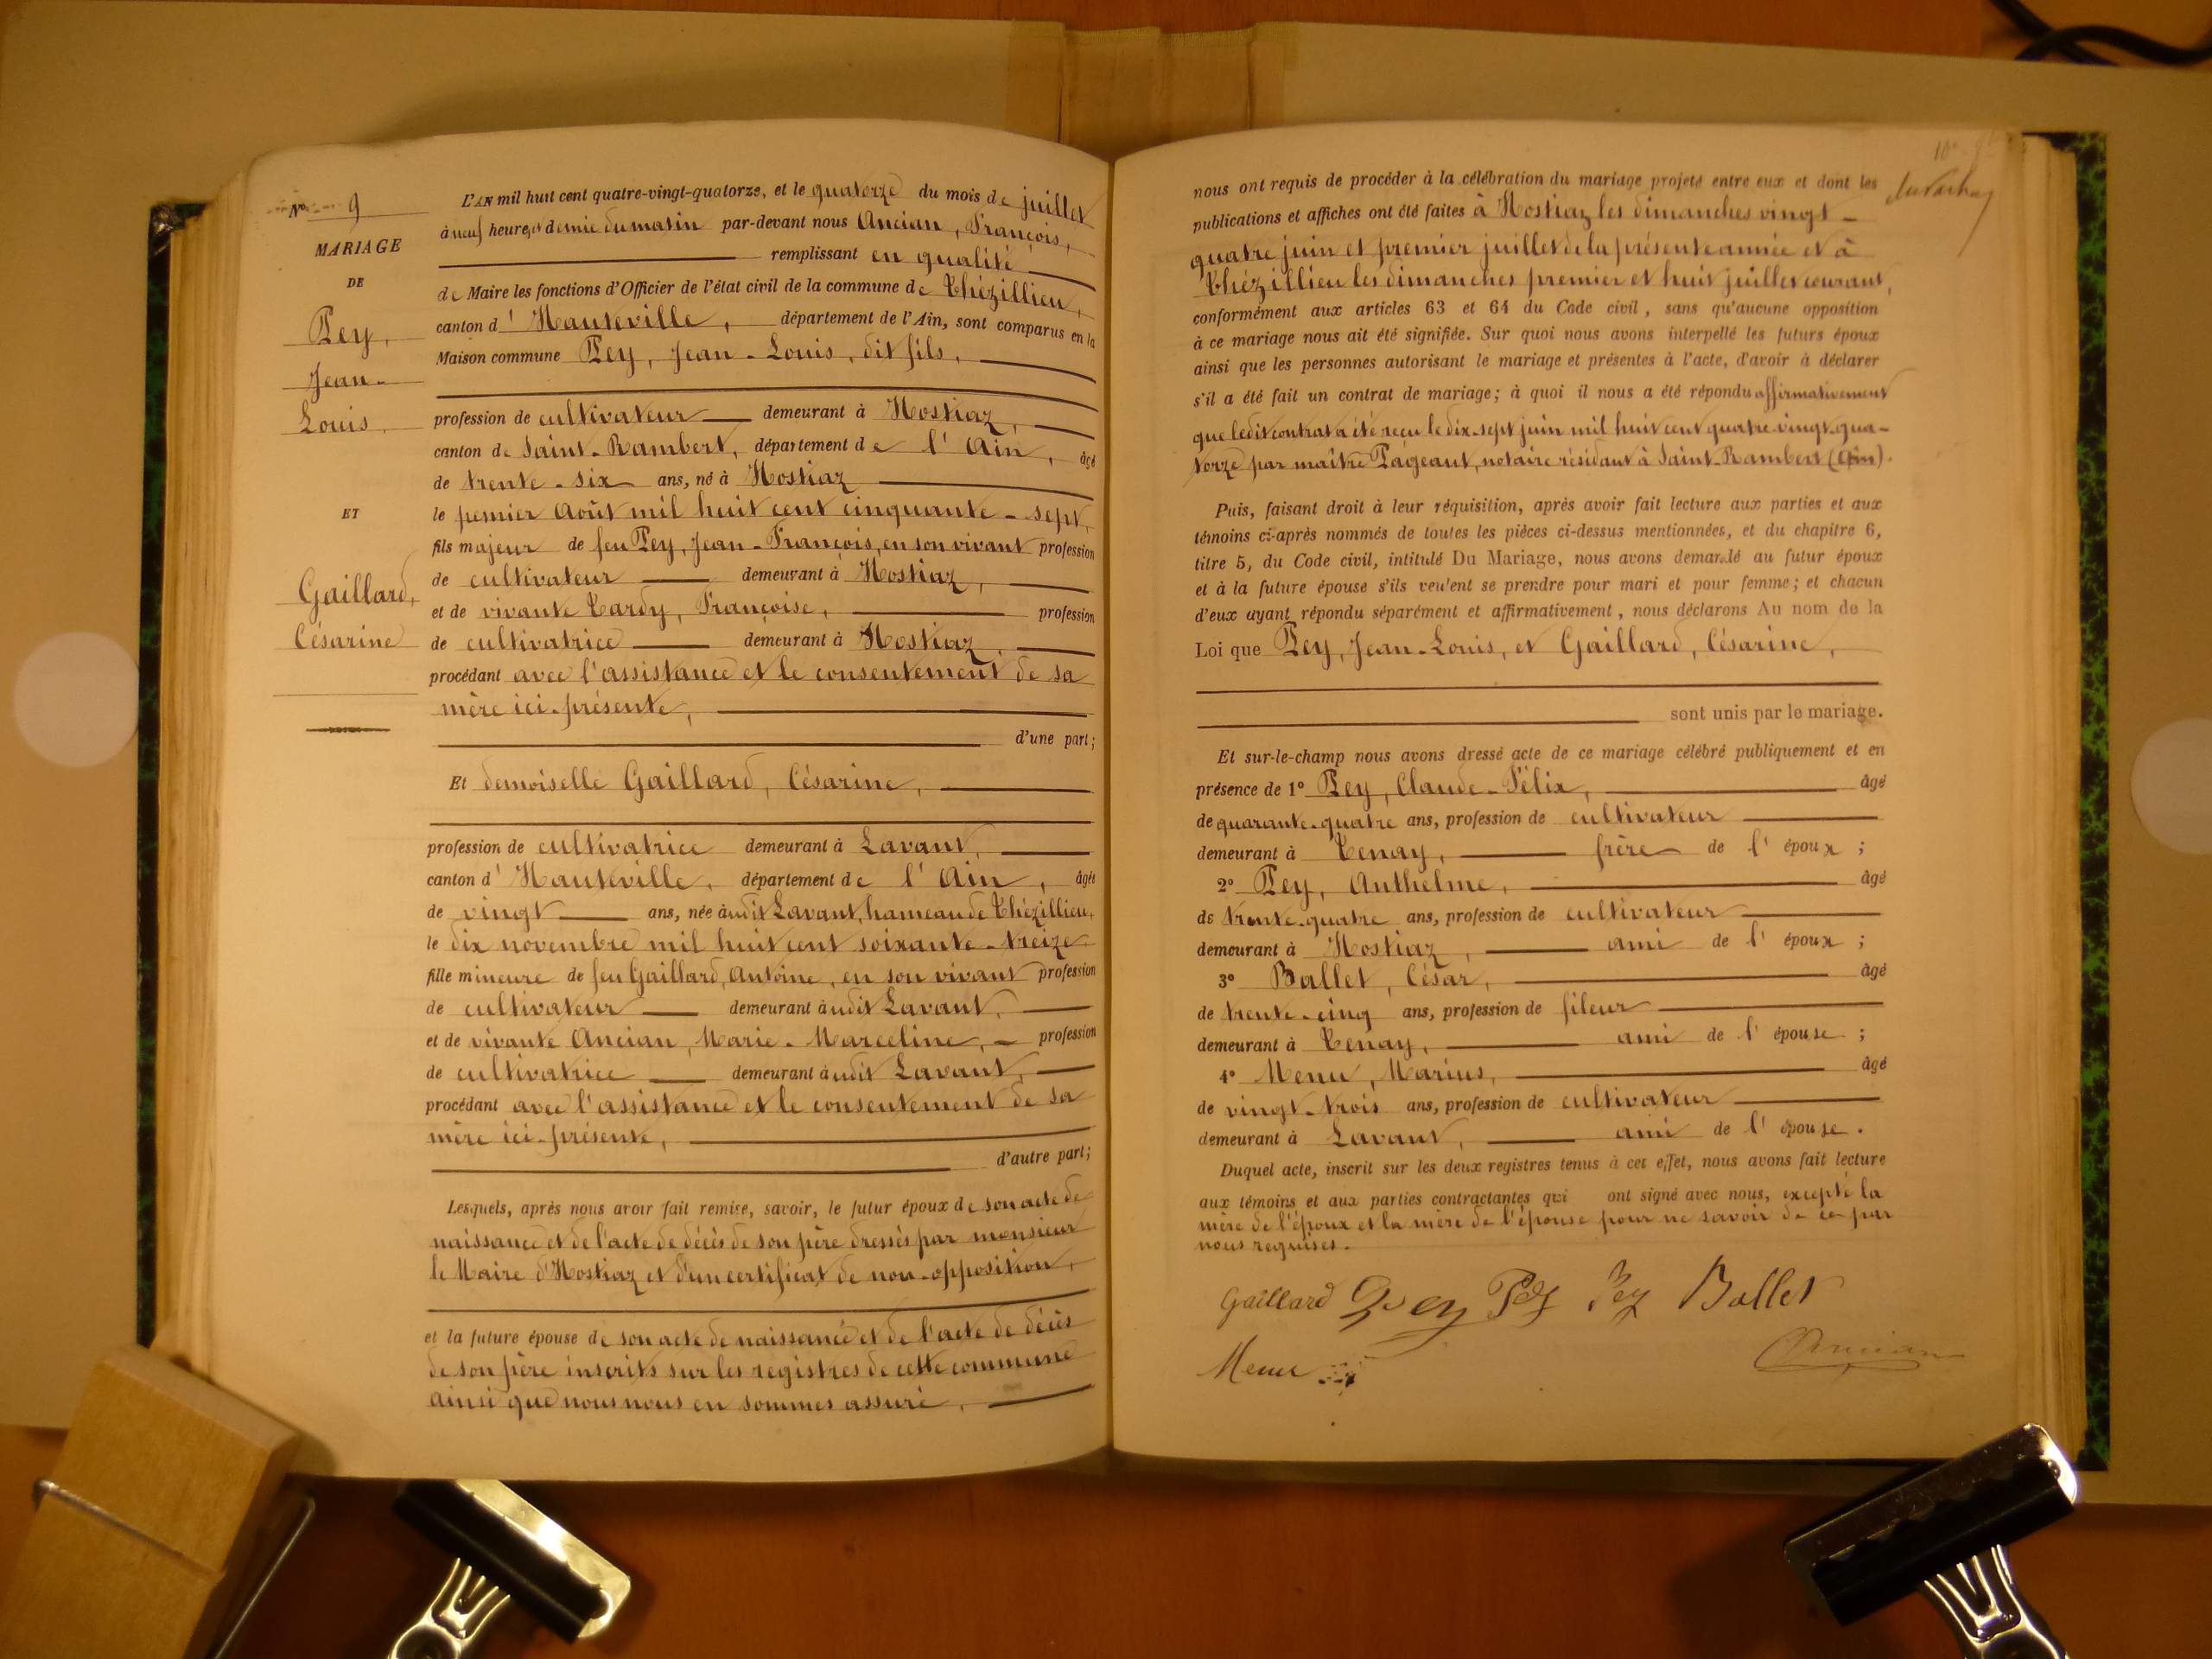 N° 9
MARIAGE
DE
Pey,
Jean-
Louis,
ET
Gaillard,
Césarine
L'AN mil huit cent quatre-vingt-quatorze, et le quatorze du mois de juillet
à neuf heures et demie du matin par-devant nous Ancian, François,
remplissant en qualité
de Maire les fonctions d'Officier de l'état civil de la commune de Thézillieu,
canton d' Hauteville, département de l'Ain, sont comparus en la
Maison commune Pey, Jean-Louis, dit fils,
profession de cultivateur demeurant à Hostiaz,
canton de Saint-Rambert, département de l'Ain, âgé
de trente-six ans, né à Hostiaz
le pemier Août mil huit cent cinquante-sept,
fils majeur de feu Pey, Jean-François, en son vivant profession
de cultivateur demeurant à Hostiaz,
et de vivante Tardy, Françoise, profession
de cultivatrice demeurant à Hostiaz,
procédant avec l'assistance et le consentement de sa
mère ici-présente,
d'une part;
Et demoiselle Gaillard, Césarine,
profession de cultivatrice demeurant à Lavant,
canton d' Hauteville, département de l'Ain, âgée
de vingt ans, née àudit Lavant, hameau de Thézillieu,
le dix novembre mil huit cent soixante-treize
fille mineure de feu Gaillard, Antoine, en son vivant profession
de cultivateur demeurant àudit Lavant,
et de vivante Ancian, Marie-Marceline, profession
de cultivatrice demeurant àudit Lavant,
procédant avec l'assistance et le consentement de sa
mère ici-présente,
d'autre part;
Lesquels, après nous avoir fait remise, savoir, le futur époux de son acte de
naissance et de l'acte de décès de son père dressés par monsieur
le Maire d'Hostiaz et d'un certificat de non-opposition,
et la future épouse de son acte de naissance et de l'acte de décès
de son père inscrits sur les registres de cette commune
ainsi que nous nous en sommes assuré,
nous ont requis de procéder à la célébration du mariage projeté entre eux et dont les
publications et affiches ont été faites à Hostiaz les dimanches vingt-
quatre juin et premier juillet de la présente année et à
Thézillieu les dimanches premier et huit juillet courant,
conformément aux articles 63 et 64 du Code civil, sans qu'aucune opposition
à ce mariage nous ait été signifiée. Sur quoi nous avons interpellé les futurs époux
ainsi que les personnes autorisant le mariage et présentes à l'acte, d'avoir à déclarer
s'il a été fait un contrat de mariage; à quoi il nous a été répondu affirmativement
que ledit contrat a été reçu le dix-sept juin mil huit cent quatre-vingt-qua-
torze par maître Pageaut, notaire résidant à Saint-Rambert (Ain).
Puis, faisant droit à leur réquisition, après avoir fait lecture aux parties et aux
témoins ci-après nommés de toutes les pièces ci-dessus mentionnées, et du chapitre 6,
titre 5, du Code civil, intitulé Du Mariage, nous avons demandé au futur époux
et à la future épouse s'ils veulent se prendre pour mari et pour femme; et chacun
d'eux ayant répondu séparément et affirmativement, nous déclarons Au nom de la
Loi que Pey, Jean-Louis, et Gaillard, Césarine,
sont unis par le mariage.
Et sur-le-champ nous avons dressé acte de ce mariage célébré publiquement et en
présence de 1° Pey, Claude-Félix, âgé
de quarante-quatre ans, profession de cultivateur
demeurant à Tenay, frère de l'époux;
2° Pey, Anthelme, âgé
de trente-quatre ans, profession de cultivateur
demeurant à Hostiaz, ami de l'époux;
3° Ballet, César, âgé
de trente-cinq ans, profession de fileur
demeurant à Tenay, ami de l'épouse;
4° Menu, Marius, âgé
de vingt-trois ans, profession de cultivateur
demeurant à Lavant, ami de l'épouse.
Duquel acte, inscrit sur les deux registres tenus à cet effet, nous avons fait lecture
aux témoins et aux parties contractantes qui ont signé avec nous, excepté la
mère de l'époux et la mère de l'épouse pour ne savoir de ce par
nous requises.
Gaillard Pey Pey Pey Ballet
Menu Ancian